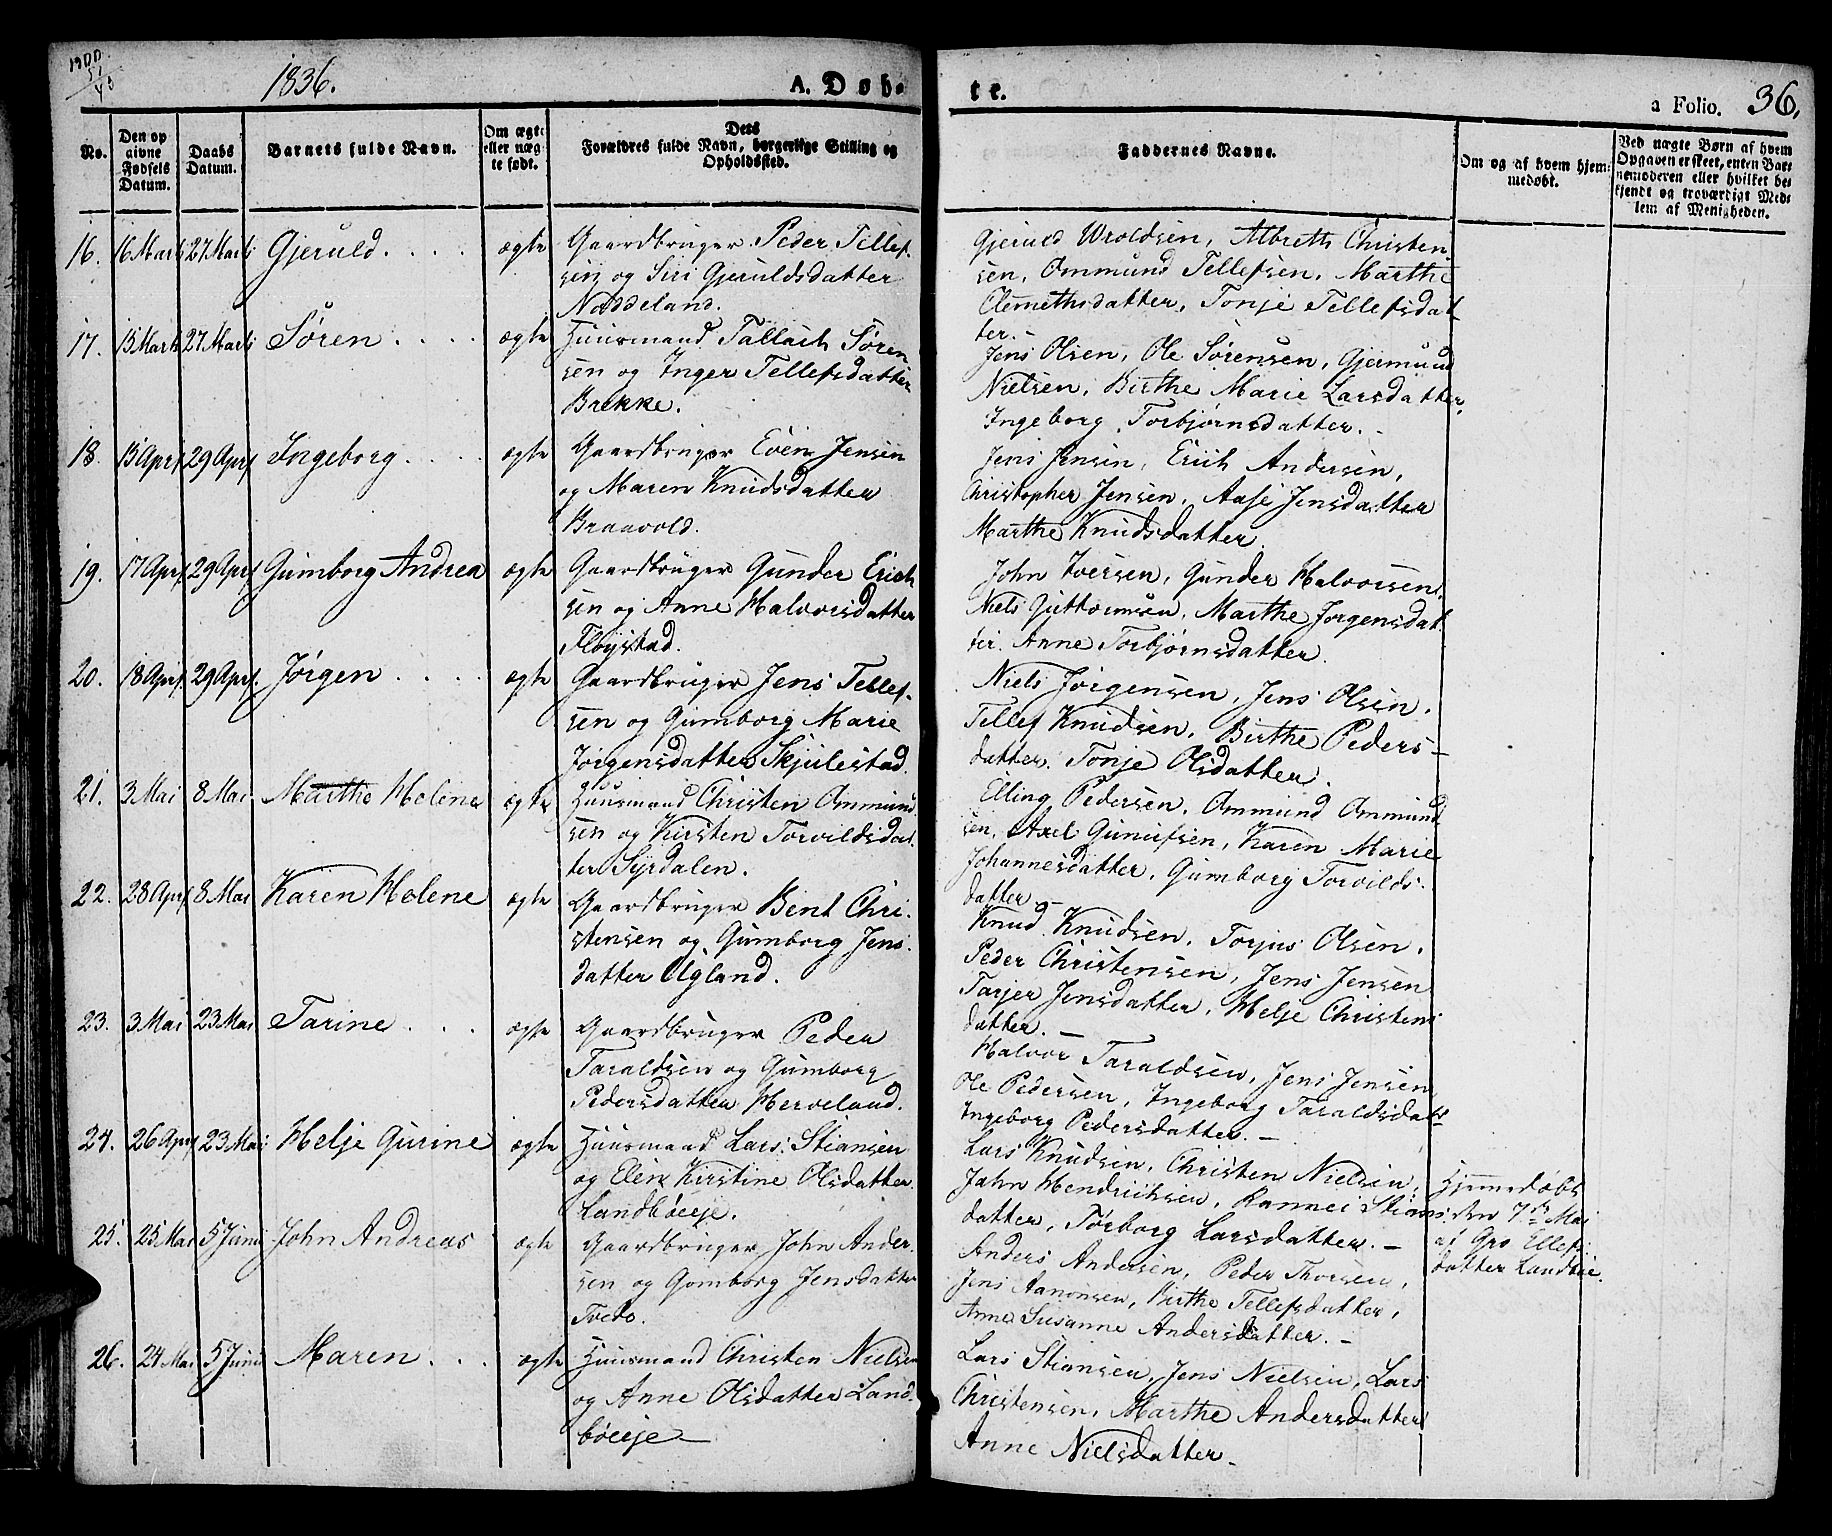 1836.
A. Døb-
te.
a Folio. 36.
No.
Den op
givne
Fødsels
Datum.
Daabs
Datum.
Barnets fulde Navn.
Om ægte
eller uæg-
te født.
Dets
Forældres fulde Navn, borgerlige Stilling og
Opholdssted.
Faddernes Navne.
Om og af hvem hjem-
medøbt.
Ved uægte Børn af hvem
Opgaven er skeet, enten Bar-
nemoderen eller hvilket be-
kjendt og troværdigt Med-
lem af Menigheden.
16. 16 Marti 27 Marti Gjeruld . . . . ægte Gaardbruger Peder Tellef-
sen og Siri Gjeruldsdatter
Næddeland.
Gjeruld Wroldsen, Albreth Christen
sen, Ommund Tellefsen, Marthe
Clemethsdatter, Tonje Tellefsdat
ter.
17. 15 Marti 27 Marti Søren . . . . ægte Huusmand Tallach Søren
sen og Inger Tellefsdatter
Brekke.
Jens Olsen, Ole Sørensen, Gjermund
Nielsen, Birthe Marie Larsdatter,
Ingeborg Torbjørnsdatter. -
18. 15 Apr. 29 Apr. Ingeborg . . . . ægte Gaardbruger Even Jensen
og Maren Knudsdatter
Braavold.
Jens Jensen, Erich Andersen,
Christopher Jensen, Aase Jensdatter
Marthe Knudsdatter.
19. 17 Apr. 29 Apr. Gumborg Andrea ægte Gaardbruger Gunder Erich
sen og Anne Halvorsdatter
Fløystad.
John Iversen, Gunder Halvorsen,
Niels Guttormsen, Marthe Jørgensdat
ter. Anne Torbjørnsdatter.
20. 18 Apr. 29 Apr. Jørgen . . . . ægte Gaardbruger Jens Tellef-
sen og Gumborg Marie
Jørgensdatter Skjulestad.
Niels Jørgensen, Jens Olsen,
Tellef Knudsen, Birthe Peders-
datter. Tonje Olsdatter.
21. 3 Mai 8 Mai Marthe Helene ægte Huusmand Christen Ommund
sen og Kirsten Torvildsdat
ter Syrdalen.
Elling Pedersen, Ommund Ommund
sen, Axel Gunulfsen, Karen Marie
Johannesdatter, Gumborg Torvilds-
datter. -
22. 28 Apr. 8 Mai Karen Helene ægte Gaardbruger Bent Chri-
stensen og Gumborg Jens-
datter Ugland.
Knud Knudsen, Torjus Olsen,
Peder Christensen, Jens Jensen
Tarjer Jensdatter, Helje Christens
datter. -
23. 3 Mai 23 Mai Tarine . . . ægte Gaardbruger Peder
Taraldsen og Gumborg
Pedersdatter Herveland.
Halvor Taraldsen, Jens Jensen
Ole Pedersen, Ingeborg Taraldsdatr
Ingeborg Pedersdatter. -
24. 26 Apr. 23 Mai Helje Gurine ægte Huusmand Lars Stiansen
og Elen Kirstine Olsdatter
Landbøeje.
Lars Knudsen, Christen Nielsen,
Jahn Hendrichsen, Rannei Stians
datter, Torborg Larsdatter. -
Hjemmedøbt
den 7de Mai
af Gro Ellefs
datter Landbøie.
25. 25 Mai 5 Juni John Andreas ægte Gaardbruger John Ander-
sen og Gomborg Jensdatter
Tvede.
Anders Andersen, Peder Thorsen,
Jens Aanonsen, Birthe Tellefsdatter,
Anne Susanne Andersdatter. -
26. 24 Mai 5 Juni Maren . . . ægte Huusmand Christen Nielsen
og Anne Olsdatter Land-
bøeje -
Lars Stiansen, Jens Nielsen, Lars
Christensen, Marthe Andersdatter
Anne Nielsdatter. -